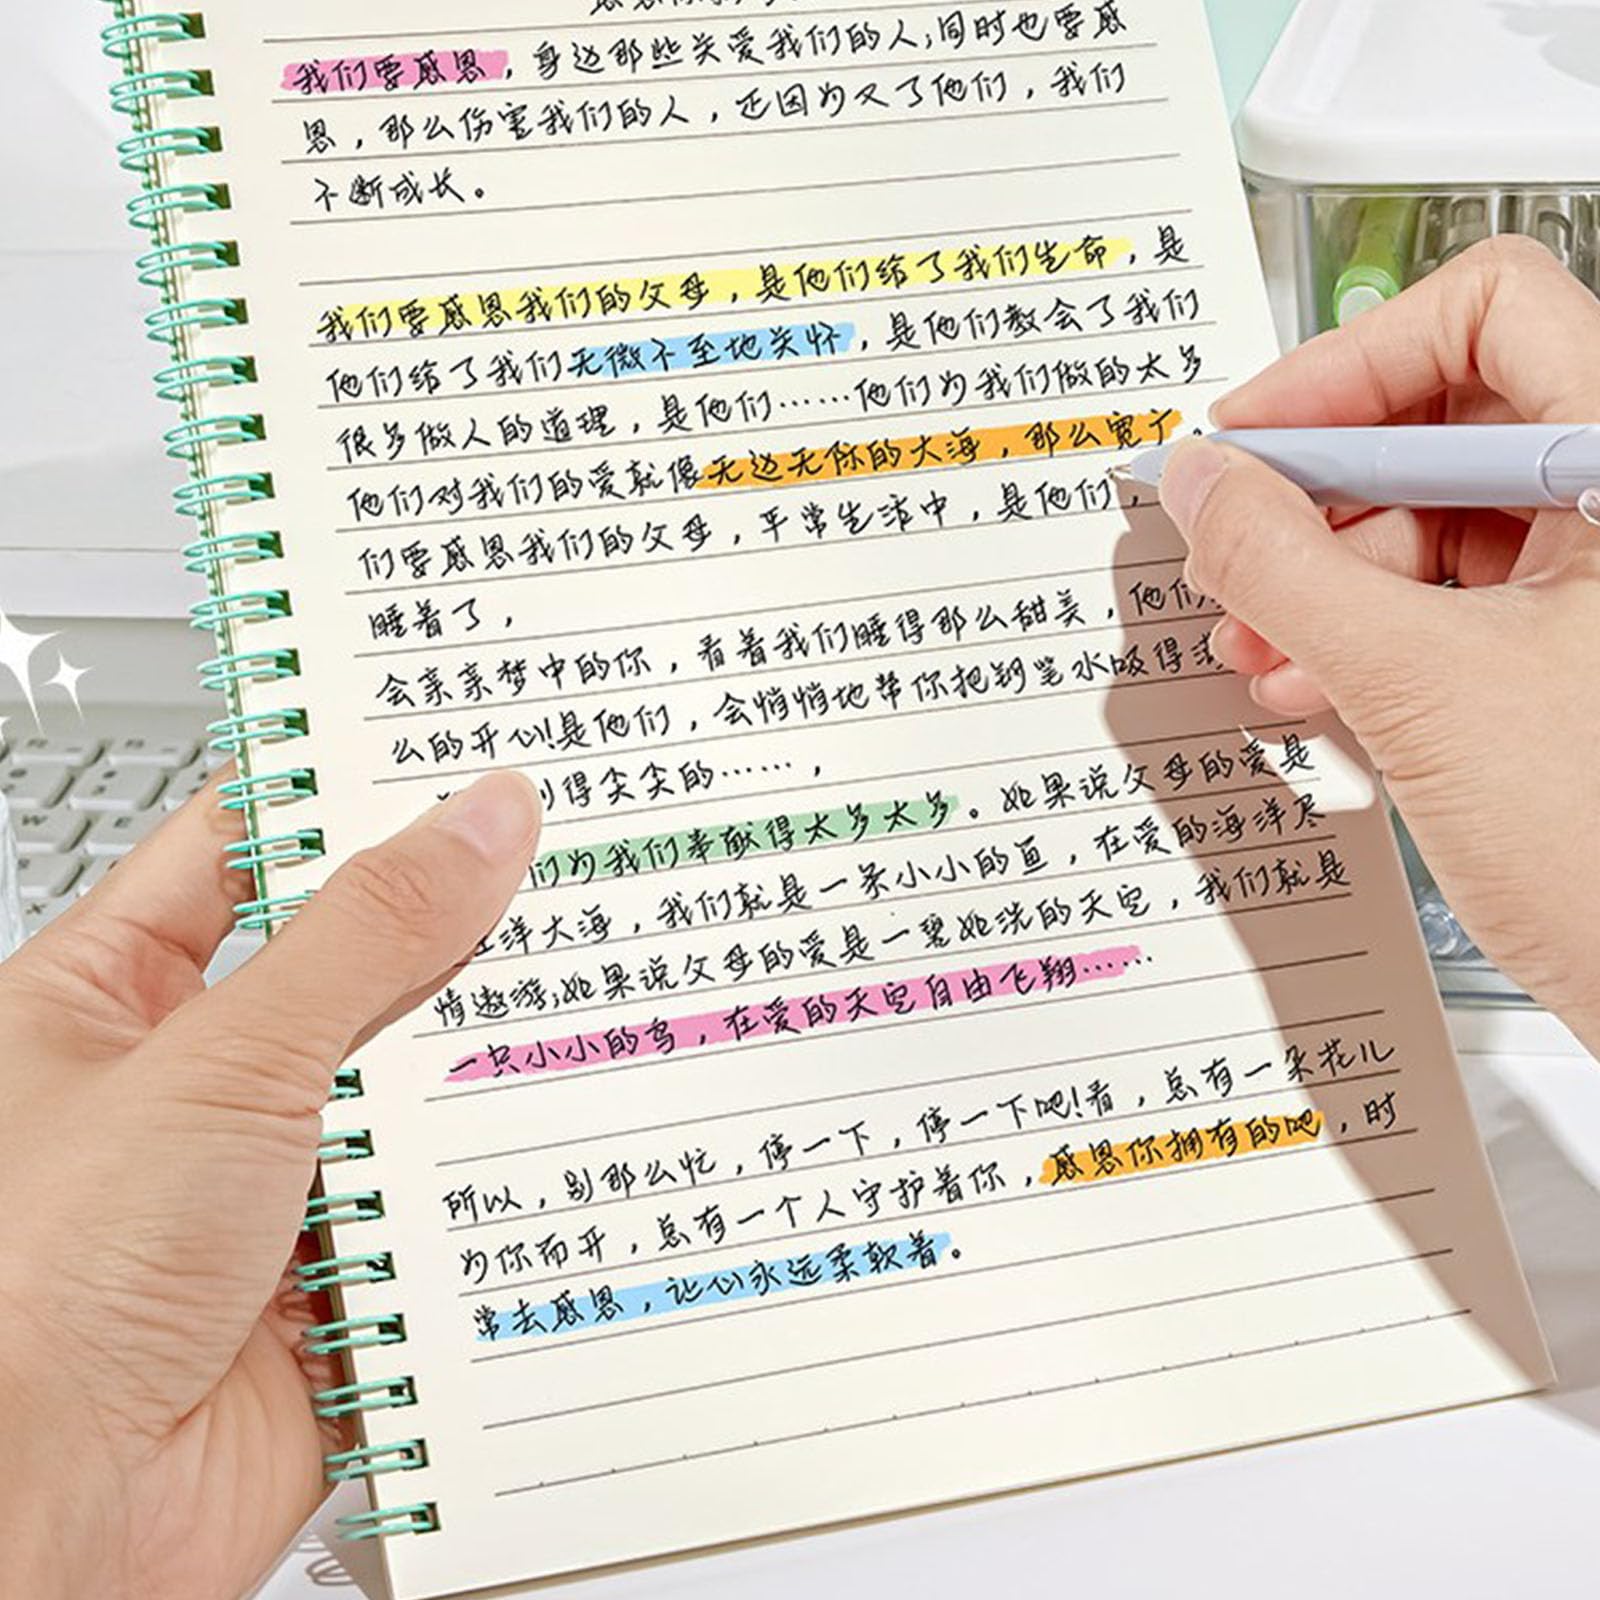 我们要感恩，身边那些关爱我们的人;同时也要感
恩，那么伤害我们的人，正因为又了他们，我们
不断成长。
我们要感恩我们的父母，是他们给了我们生命，是
他们给了我们无微不至地关怀，是他们教会了我们
很多做人的道理，是他们……他们为我们做的太多
他们对我们的爱就像无边无际的大海，那么宽广。
们要感恩我们的父母，平常生活中，是他们，
睡着了，
会亲亲梦中的你，看着我们睡得那么甜美，他们
么的开心!是他们，会悄悄地帮你把钢笔水吸得满
得尖尖的……，
们为我们奉献得太多太多。如果说父母的爱是
洋大海，我们就是一条小小的鱼，在爱的海洋尽
情遨游;如果说父母的爱是一碧如洗的天空，我们就是
一只小小的鸟，在爱的天空自由飞翔……
所以，别那么忙，停一下，停一下吧!看，总有一朵花儿
为你而开，总有一个人守护着你，感恩你拥有的吧，时
常去感恩，让心永远柔软着。
W
E
X